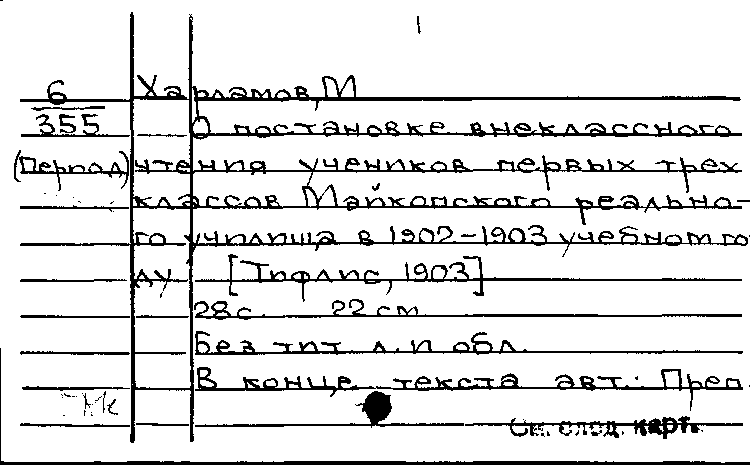 1
6 Харламов, М
355 О постановке внеклассного
(Период) чтения учеников первых трех
классов Майкопского реально-
го училища в 1902-1903 учебном го
ду [Тифлис, 1903]
28 с. 22 см
Без тит л. и обл.
В конце текста авт.: Преп.
См. след. карт.